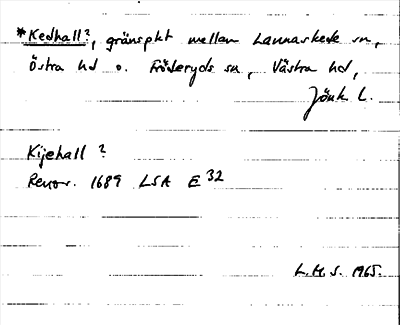 *Kedhall?, gränspkt mellan Lannaskede sn,
Östra hd o. Fröderyds sn, Västra hd,
Jönk L.
Kijehall ?
Renov. 1689 LSA E 32
L.M.S. 1965.